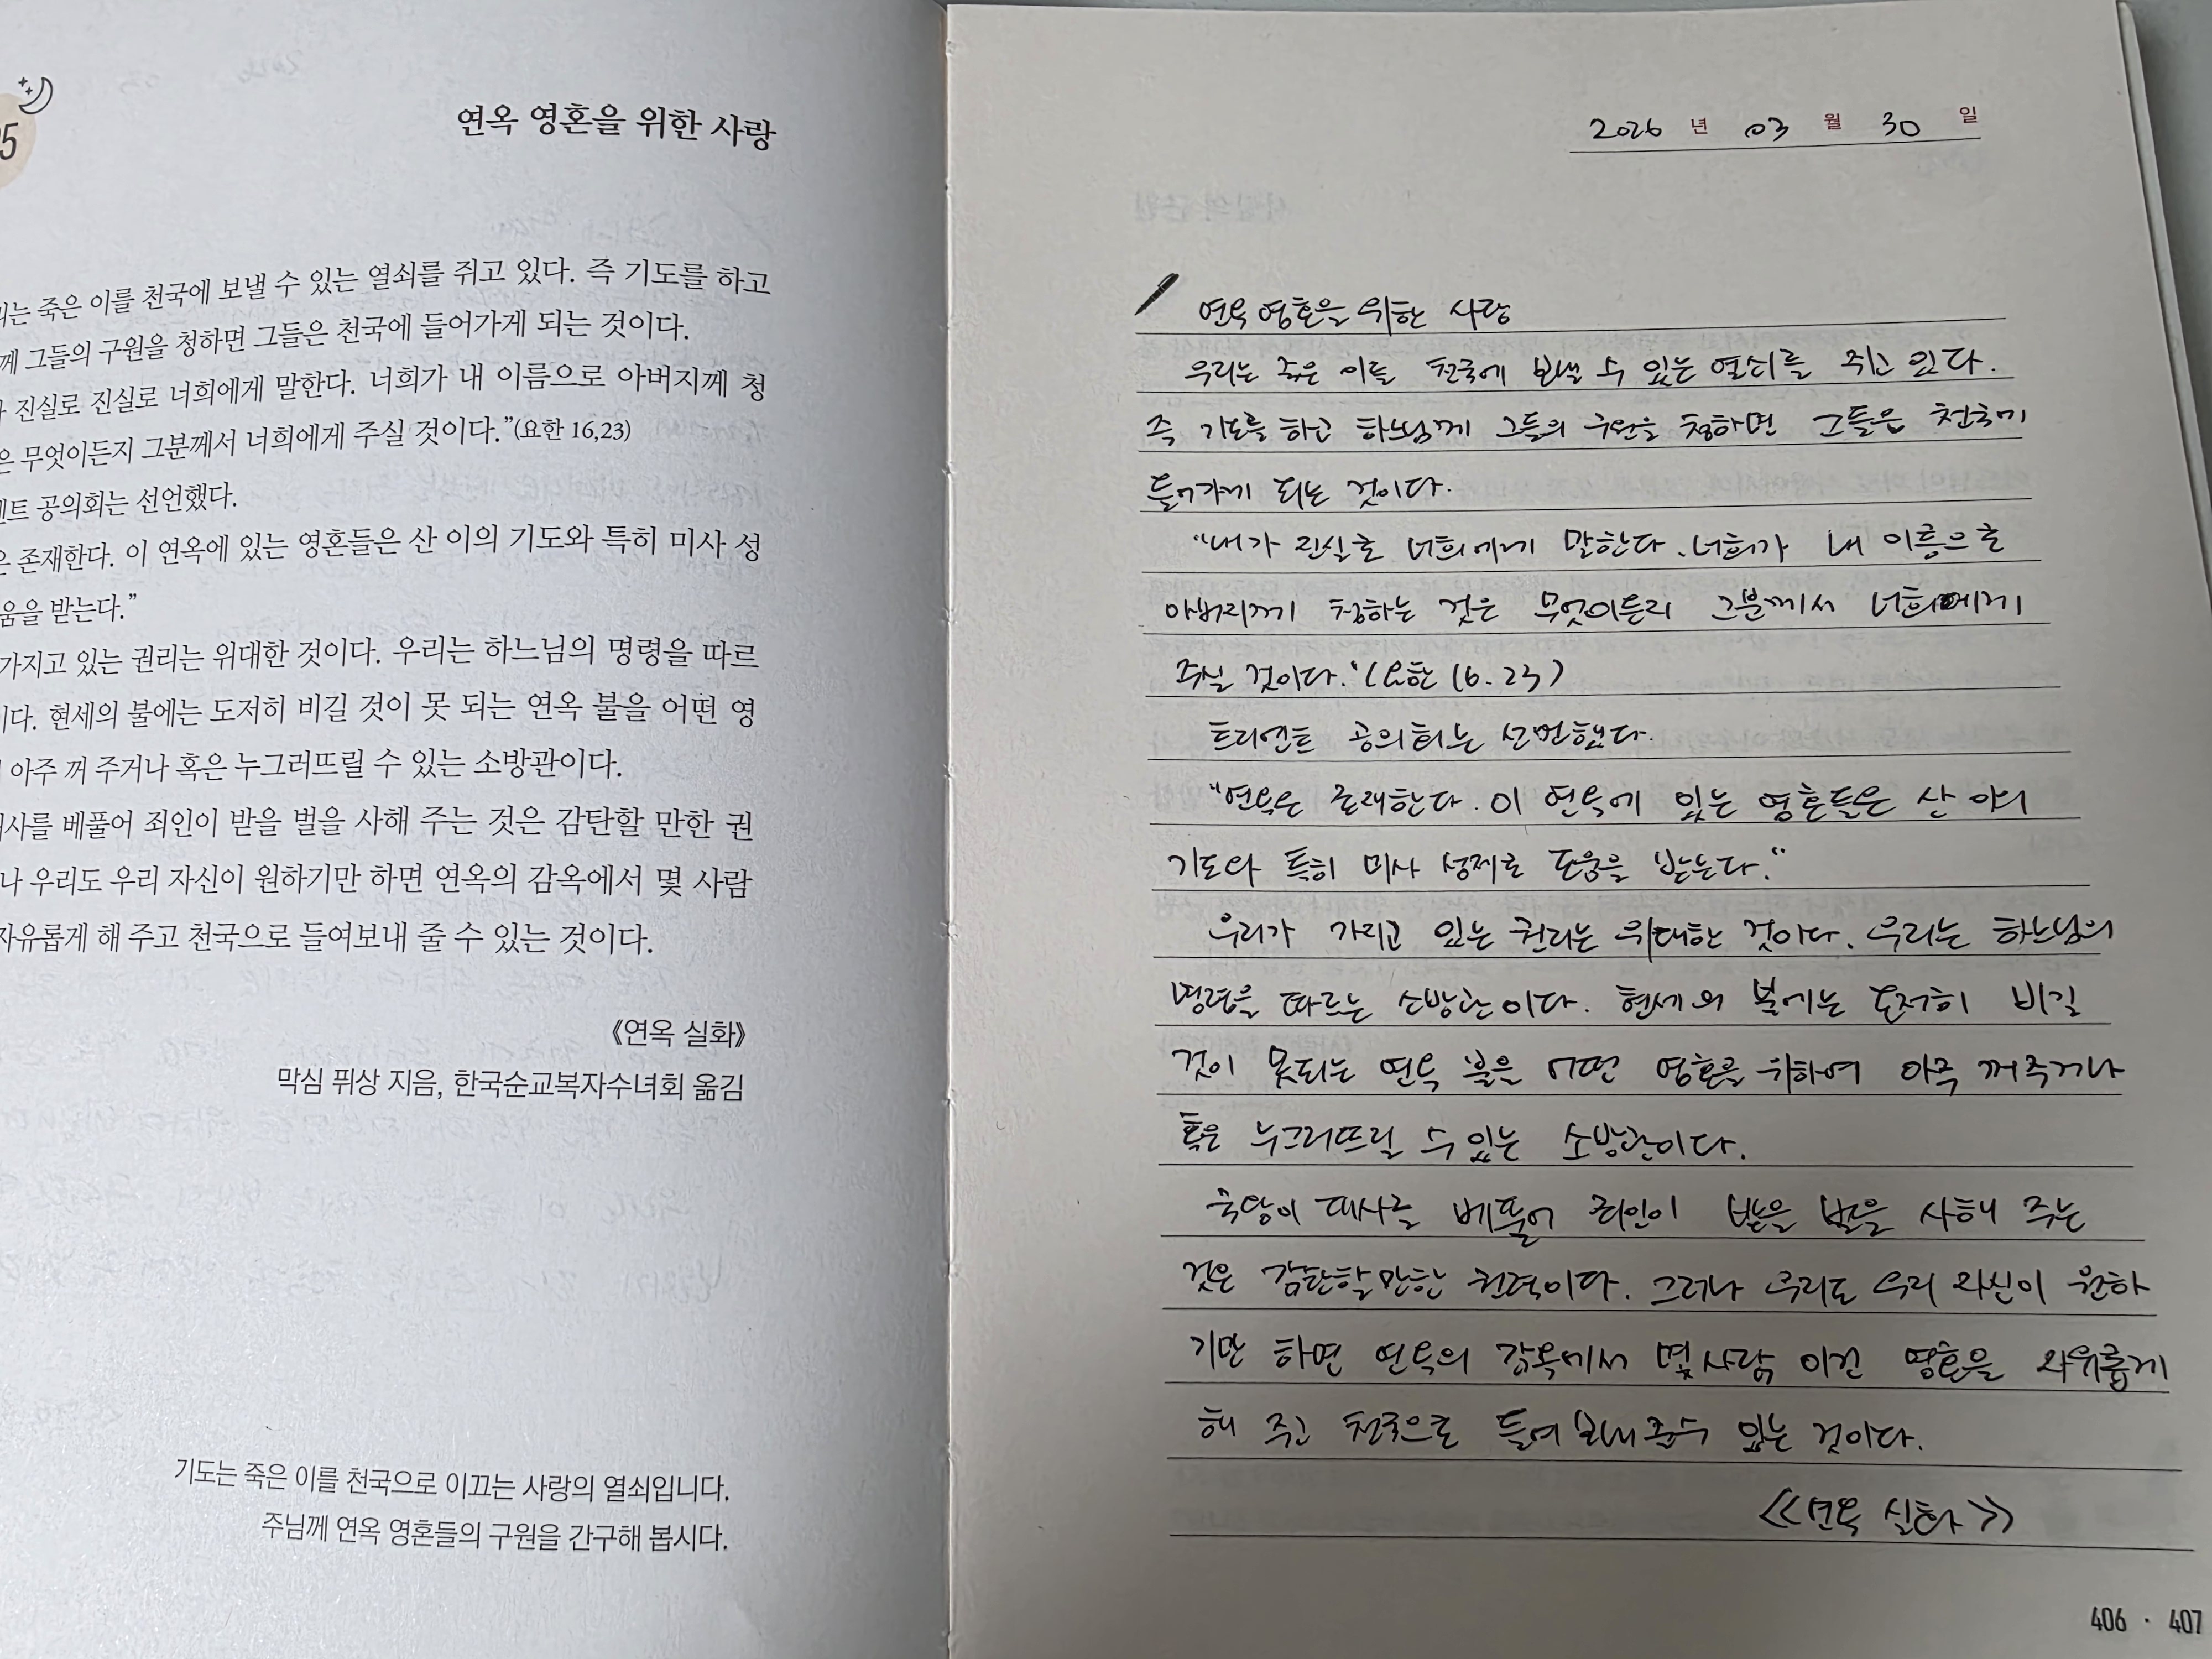 5
연옥 영혼을 위한 사랑
는 죽은 이를 천국에 보낼 수 있는 열쇠를 쥐고 있다. 즉 기도를 하고
께 그들의 구원을 청하면 그들은 천국에 들어가게 되는 것이다.
진실로 진실로 너희에게 말한다. 너희가 내 이름으로 아버지께 청
은 무엇이든지 그분께서 너희에게 주실 것이다.”(요한 16,23)
엔트 공의회는 선언했다.
은 존재한다. 이 연옥에 있는 영혼들은 산 이의 기도와 특히 미사 성
움을 받는다.”
가지고 있는 권리는 위대한 것이다. 우리는 하느님의 명령을 따르
이다. 현세의 불에는 도저히 비길 것이 못 되는 연옥 불을 어떤 영
아주 꺼 주거나 혹은 누그러뜨릴 수 있는 소방관이다.
사를 베풀어 죄인이 받을 벌을 사해 주는 것은 감탄할 만한 권
나 우리도 우리 자신이 원하기만 하면 연옥의 감옥에서 몇 사람
자유롭게 해 주고 천국으로 들여보내 줄 수 있는 것이다.
《연옥 실화》
막심 퓌상 지음, 한국순교복자수녀회 옮김
기도는 죽은 이를 천국으로 이끄는 사랑의 열쇠입니다.
주님께 연옥 영혼들의 구원을 간구해 봅시다.
2026 년 03 월 30 일
연옥 영혼을 위한 사랑
우리는 죽은 이를 천국에 보낼 수 있는 열쇠를 쥐고 있다.
즉 기도를 하고 하느님께 그들의 구원을 청하면 그들은 천국에
들어가게 되는 것이다.
“내가 진실로 너희에게 말한다. 너희가 내 이름으로
아버지께 청하는 것은 무엇이든지 그분께서 너희에게
주실 것이다.“(요한 16.23)
트리엔트 공의회는 선언했다.
“연옥은 존재한다. 이 연옥에 있는 영혼들은 산 이의
기도와 특히 미사 성제로 도움을 받는다.“
우리가 가지고 있는 권리는 위대한 것이다. 우리는 하느님의
명령을 따르는 소방관이다. 현세의 불에는 도저히 비길
것이 못되는 연옥 불을 어떤 영혼을 위하여 아주 꺼주거나
혹은 누그러뜨릴 수 있는 소방관이다.
국왕이 대사를 베풀어 죄인이 받을 벌을 사해 주는
것은 감탄할만한 권력이다. 그러나 우리도 우리 자신이 원하
기만 하면 연옥의 감옥에서 몇 사람 이건 영혼을 자유롭게
해 주고 천국으로 들여보내 줄 수 있는 것이다.
《연옥 실화》
406 · 407